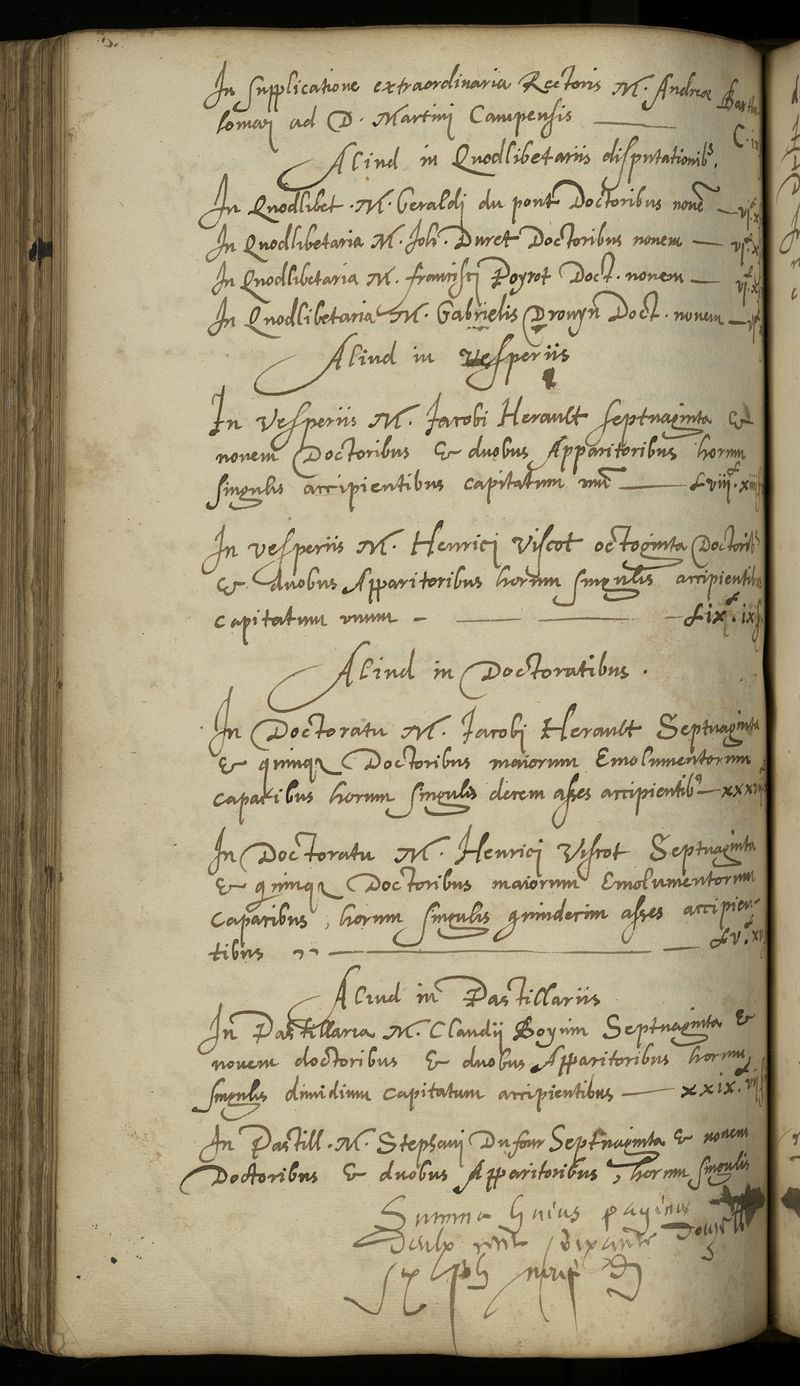 In supplicatione extraordinaria Rectoris M. Andreæ Bartho
lomæi ad D. Martini Campensis
Aliud in Quodlibetariis disputationib⁹.
In Quodlibet. M. Geraldi du pont Doctoribus nonē
In Quodlibetaria M. Joh. Duret Doctoribus nonem
In Quodlibetaria M. francisci Poyrot Doct. nonem
In Quodlibetaria M. Gabrielis Drouyn Doct. nonem
Aliud in Vesperiis
In Vesperiis M. Jacobi Herault septuaginta &
nonem Doctoribus & duobus Apparitoribus horum
singulis accipientibus capitatum
In vesperiis M. Henrici Viscot octoginta Doctorib⁹
& duobus Apparitoribus horum singulis accipientib
Capitatum vnum
Aliud in Doctoratibus.
In Doctoratu M. Jacobi Herault Septuaginta
& quinque Doctoribus maiorum Emolumentorum
capacibus horum singulis decem asses accipientib⁹
In Doctoratu M. Henrici Viscot Septuaginta
& quinque Doctoribus maiorum Emolumentorum
Capacibus, horum singulis quindecim asses accipien-
tibus
Aliud in Pastillariis
In Pastillaria M. Claudii Septuaginta &
nonem doctoribus & duobus Apparitoribus horum
singulis dimidium capitatum accipientibus xxix
In Pastill. M. Stephani Dufour Septuaginta & nonem
Doctoribus & duobus Apparitoribus, horum singulis
Summa huius paginæ